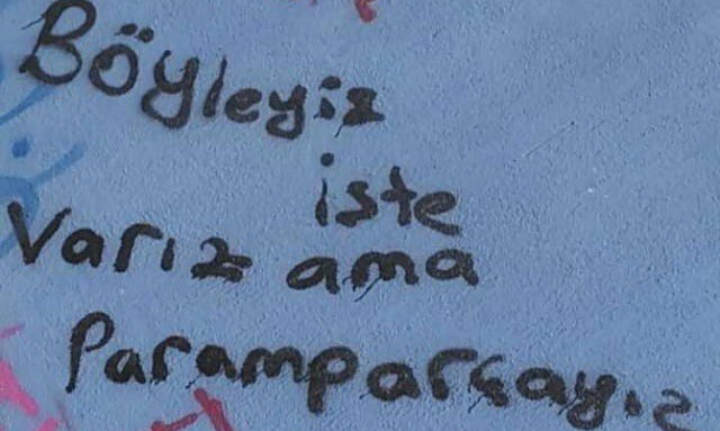 Böyleyiz
iste
Varız ama
Paramparçayız